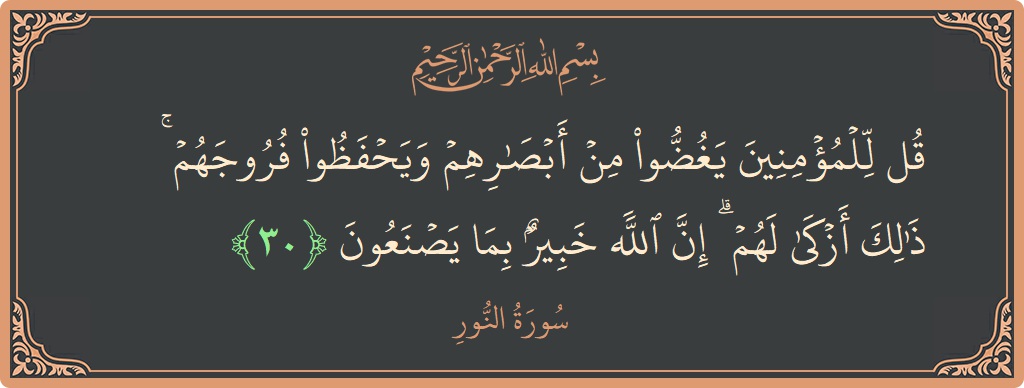 بِسْمِ اللَّهِ الرَّحْمَٰنِ الرَّحِيمِ
قُل لِّلْمُؤْمِنِينَ يَغُضُّوا۟ مِنْ أَبْصَٰرِهِمْ وَيَحْفَظُوا۟ فُرُوجَهُمْ ۚ
ذَٰلِكَ أَزْكَىٰ لَهُمْ ۗ إِنَّ ٱللَّهَ خَبِيرٌۢ بِمَا يَصْنَعُونَ ﴿٣٠﴾
سُورَةُ النُّورِ